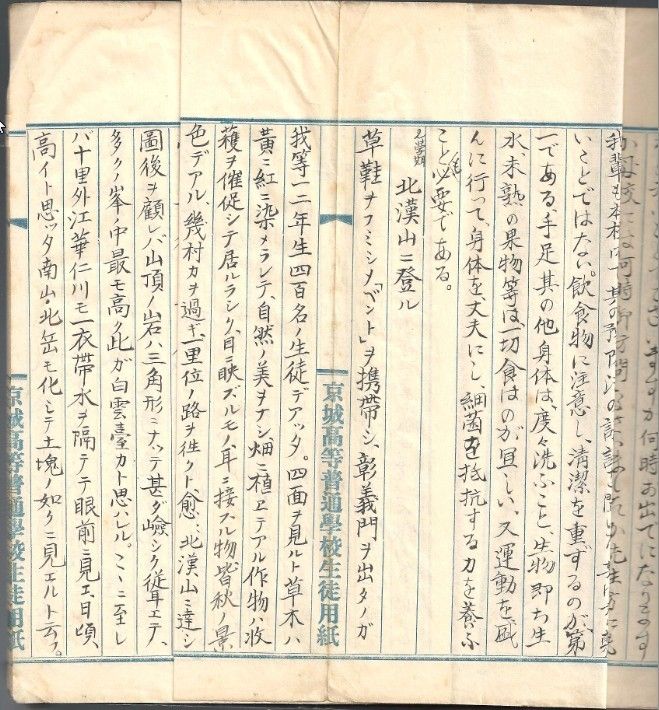 いことではない。飲食物に注意し、清潔を重ずるのが第
一である、手足其の他身体は度々洗ふこと、生物即ち生
水、未熟の果物等は一切食はのが宜しい、又運動を盛
んに行って、身体を丈夫にし、細菌を抵抗する力を養ふ
こと必要である。
北漢山ニ登ル
草鞋ヲフミシメ「ベント」ヲ携帯シ、彰義門ヲ出タノガ
京城高等普通學校生徒用紙
我等一二年生四百名ノ生徒デアッタ。四面ヲ見ルト草木ハ
黄ニ紅ニ染メラレテ、自然ノ美ヲナシ畑ニ植ヱテアル作物ハ收
穫ヲ催促シテ居ルラシク、目ニ映ズルモノ耳ニ接スル物皆秋ノ景
色デアル、幾村カヲ過ギ、一里位ノ路ヲ往クト愈々北漢山ニ達シ
圖後ヲ顧レバ山頂ノ岩ハ三角形ニナッテ甚ダ嶮シク聳エテ、
多クノ峯ノ中最モ高ク此ガ白雲臺カト思ハレル。こゝニ至レ
バ十里外江華仁川モ一衣帯水ヲ隔テテ眼前ニ見エ、日頃
高イト思ッタ南山、北岳モ化シテ土塊ノ如クニ見エルト云フ。
京城高等普通學校生徒用紙